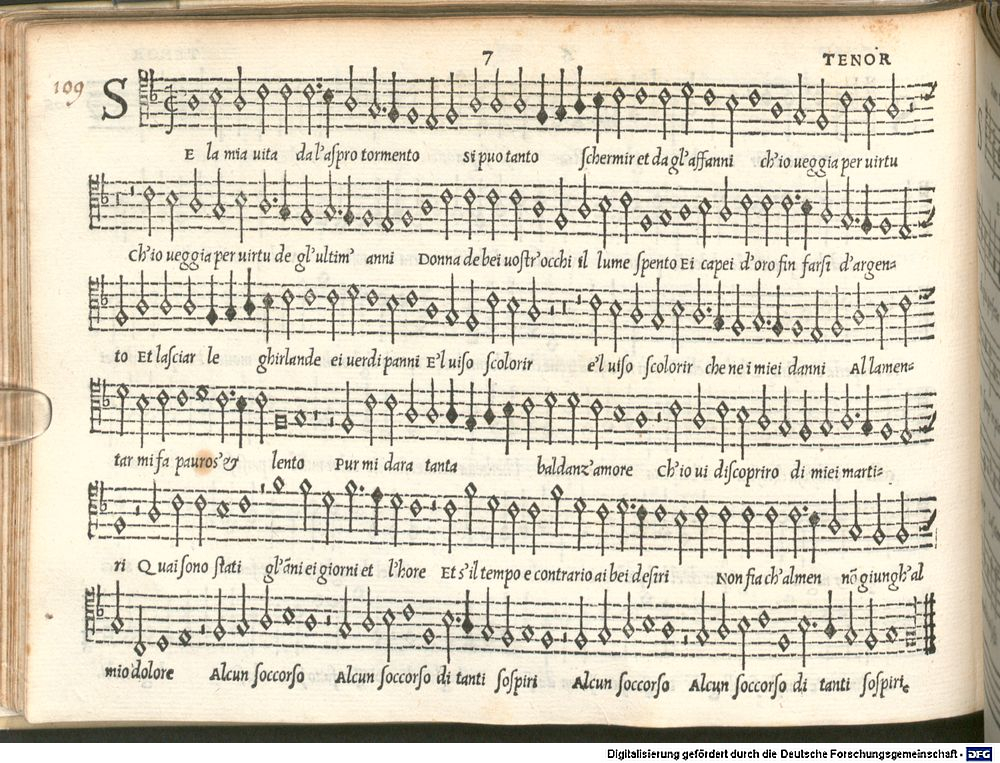 7
TENOR
109
S
E la mia uita da l'aspro tormento Si puo tanto schermir et da gl'affanni ch'io ueggia per uirtu
Ch'io ueggia per uirtu de gl'ultim' anni Donna de bei uostr'occhi il lume spento Ei capei d'oro fin farsi d'argen=
to Et lasciar le ghirlande ei uerdi panni E'l uiso scolorir e'l uiso scolorir che ne i miei danni Al lamen=
tar mi fa pauros'& lento Pur mi dara tanta baldanz'amore Ch'io ui discopriro di miei marti=
ri Quai sono stati gl'āni ei giorni et l'hore Et s'il tempo e contrario ai bei desiri Non fia ch'almen nō giungh'al
mio dolore Alcun soccorso Alcun soccorso di tanti sospiri Alcun soccorso Alcun soccorso di tanti sospiri.
Digitalisierung gefördert durch die Deutsche Forschungsgemeinschaft - DFG